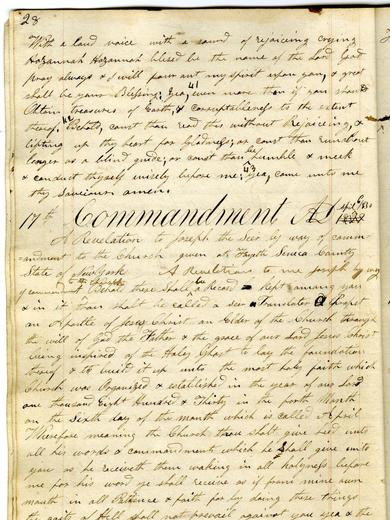 28
With a loud voice with a sound of rejoiceing crying
Hozannah Hozannah blesed be the name of the Lord God
pray always & I will pour out my spirit upon you & great
shall be your Blessing; Yea, even more than if you should
Obtain treasures of Earth, & corruptableness to the extent
thereof, Behold, canst thou read this without Rejoiceing, &
lifting up thy heart for Gladness; or canst thou run about
longer as a blind guide; or canst thou be humble & meek
& conduct thyself wisely before me; Yea, come unto me
thy Saviour amen.
17th Commandment AD April 6 1830
A Revelation to Joseph the Seer by way of comm-
andment to the Church given at Fayette Seneca County
State of New York A Revelation to me Joseph by way
of commandment to the church Behold there shall be Reccord Kept among you
& in it thou shalt be called a seer & Translator & Prophet
an Apostle of Jesus Christ an Elder of the Church through
the will of God the Father & the grace of our Lord Jesus Christ
being inspired of the Holy Ghost to lay the foundation
thereof & to build it up unto the most holy faith which
Church was Organized & established in the year of our Lord
one thousand Eight Hundred & Thirty in the forth Month
on the Sixth day of the Month which is called April
Therefore meaning the Church thou shalt give heed unto
all his words & commandment which he shall give unto
you as he receiveth them walking in all holyness before
me for his word ye shall receive as if from mine own
mouth in all Patience & faith for by doing these things
the gaits of Hell shall not prevail against you yea & the